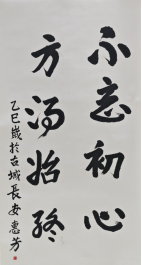 不忘初心
方得始终
乙巳岁於古城長安惠芳